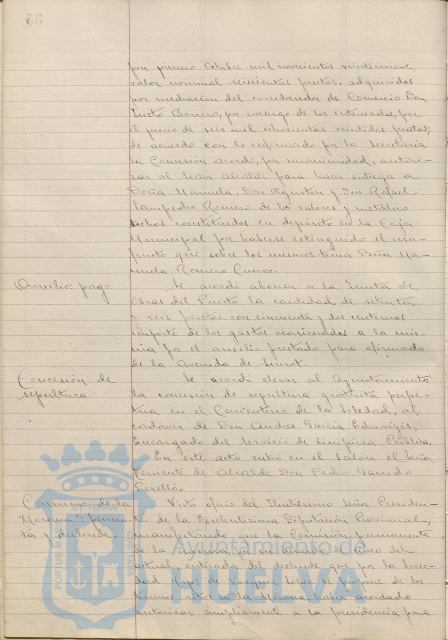 por primero Octubre mil novecientos veintinueve
valor nominal seiscientas pesetas, adquiridos
por mediacion del corredor de Comercio Don
Justo Borrero, por encargo de los interesados, por
el precio de seis mil ochocientas veintidos pesetas;
de acuerdo con lo informado por la Secretaría
la Comisión acordó, por unanimidad, autori-
zar al Señor Alcalde para hacer entrega a
Doña Manuela, Don Agustin y Don Rafael
Sampedro Romero de los valores y metálico
dichos constituidos en depósito en la Caja
Municipal por haberse extinguido el usu-
fructo que sobre los mismos tenia Doña Ma-
nuela Romero Cuervo.
Auxilio: pago.
Se acordó abonar a la Junta de
Obras del Puerto la cantidad de setenta
y seis pesetas con cincuenta y dos centimos
importe de los gastos ocasionados a la mis-
ma por el auxilio prestado para afirmado
de la Avenida de
Concesión de
sepultura.
Se acordó elevar al Ayuntamiento
la concesión de sepultura gratuita perpe-
tua en el Cementerio de la Soledad, al
cadaver de Don Andrés Garcia Eduvigis,
Encargado del Servicio de Limpieza Pública.
En este acto entró en el Salon el Señor
Teniente de Alcalde Don Pedro Garrido
Perelló.
la
y deslinde.
Visto oficio del Ilustrisimo Señor Presiden-
te de la Excelentisima Diputación Provincial,
manifestando que la Comisión permanente
de la misma en sesion del
actual enterada del deslinde que por la
de se propone de los
en la había acordado
autorizar ampliamente a la Presidencia para
Ayuntamiento de
HUELVA